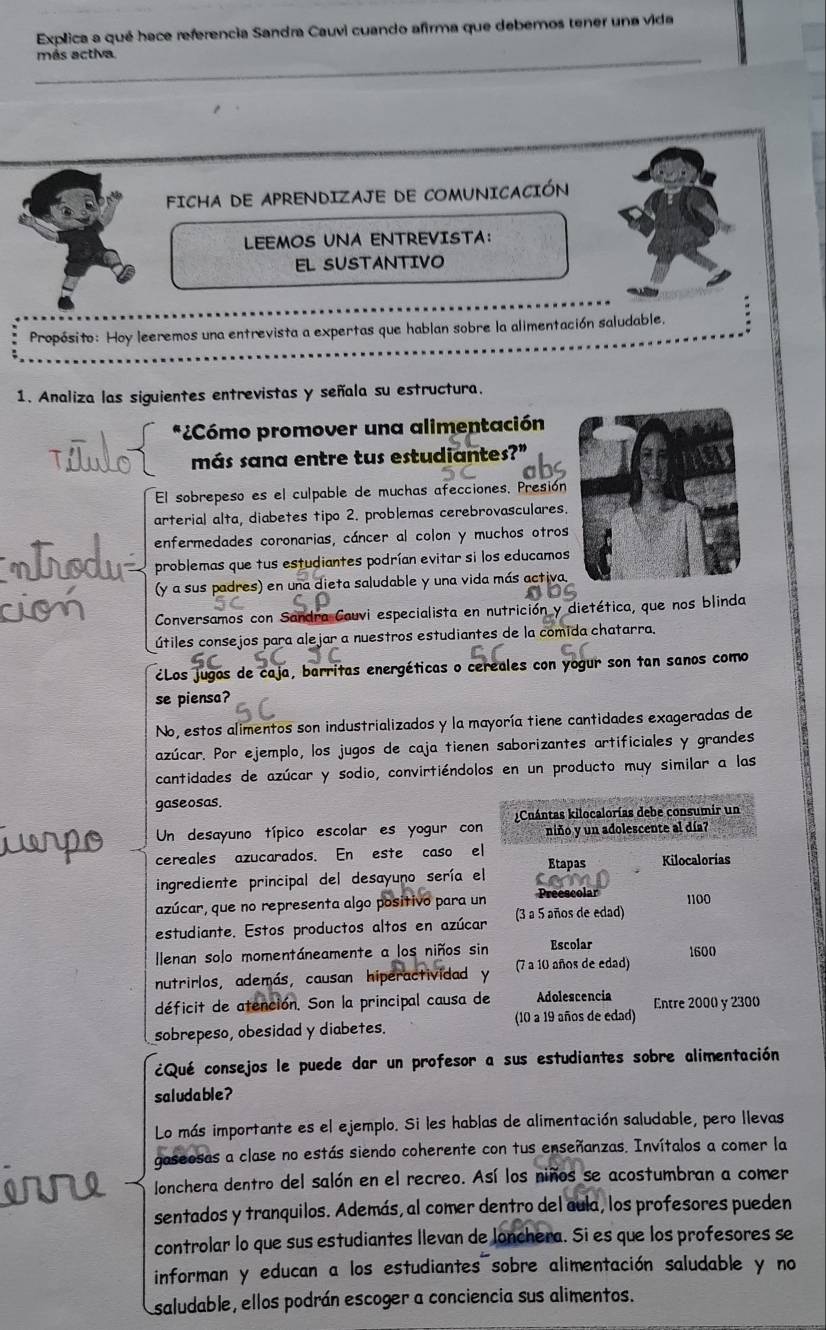 Explica a qué hace referencia Sandra Cauvi cuando afirma que debemos tener una vida
más activa.
FICHA DE APRENDIZAJE DE COMUNICACIÓN
LEEMOS UNA ENTREVISTA:
EL SUSTANTIVO
Propósito: Hoy leeremos una entrevista a expertas que hablan sobre la alimentación saludable.
1. Analiza las siguientes entrevistas y señala su estructura.
Título
"¿Cómo promover una alimentación
SC
más sana entre tus estudiantes?"
SC abs
El sobrepeso es el culpable de muchas afecciones. Presión
arterial alta, diabetes tipo 2. problemas cerebrovasculares.
enfermedades coronarias, cáncer al colon y muchos otros
Introdu-
problemas que tus estudiantes podrían evitar si los educamos
SC
(y a sus padres) en una dieta saludable y una vida más activa.
ción
SC S.P abs
Conversamos con Sandra Cauvi especialista en nutrición y dietética, que nos blinda
SC
útiles consejos para alejar a nuestros estudiantes de la comida chatarra.
SC SC SC SC SC
¿Los jugos de caja, barritas energéticas o cereales con yogur son tan sanos como
se piensa?
SC
No, estos alimentos son industrializados y la mayoría tiene cantidades exageradas de
azúcar. Por ejemplo, los jugos de caja tienen saborizantes artificiales y grandes
cantidades de azúcar y sodio, convirtiéndolos en un producto muy similar a las
gaseosas.
uerpo
Un desayuno típico escolar es yogur con
cereales azucarados. En este caso el
ingrediente principal del desayuno sería el
abs
azúcar, que no representa algo positivo para un
estudiante. Estos productos altos en azúcar
llenan solo momentáneamente a los niños sin
abs
nutrirlos, además, causan hiperactividad y
abs
déficit de atención. Son la principal causa de
sobrepeso, obesidad y diabetes.
¿Cuántas kilocalorías debe consumir un
niño y un adolescente al día?
Etapas Kilocalorías
comp
Preescolar
(3 a 5 años de edad) 1100
Escolar
(7 a 10 años de edad) 1600
Adolescencia
(10 a 19 años de edad) Entre 2000 y 2300
¿Qué consejos le puede dar un profesor a sus estudiantes sobre alimentación
saludable?
Lo más importante es el ejemplo. Si les hablas de alimentación saludable, pero llevas
com
gaseosas a clase no estás siendo coherente con tus enseñanzas. Invítalos a comer la
com
ierre
lonchera dentro del salón en el recreo. Así los niños se acostumbran a comer
com
sentados y tranquilos. Además, al comer dentro del aula, los profesores pueden
com
controlar lo que sus estudiantes llevan de lonchera. Si es que los profesores se
informan y educan a los estudiantes sobre alimentación saludable y no
saludable, ellos podrán escoger a conciencia sus alimentos.